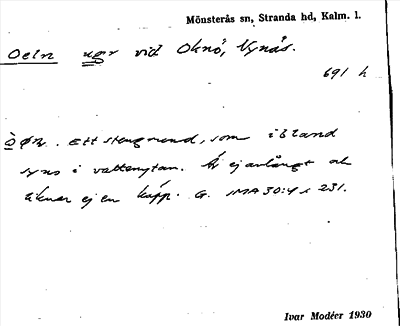 Mönsterås sn, Stranda hd, Kalm. l.
Oeln ugr vid Oknö, Vynäs.
691 h
Ett stengrund, som ibland
syns i vattenytan. Är ej avlångt och
liknar ej en käpp. G. IMA 30:4 s 231.
Ivar Modéer 1930